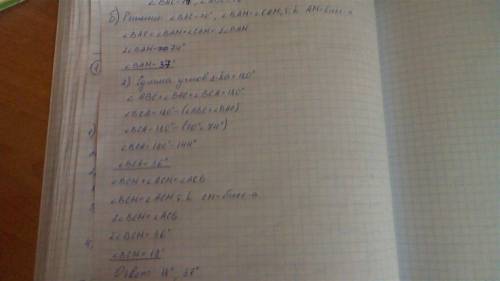 б) Решение: ∠BAC=74°, ∠BAM=∠CAM, т.к. AM=бисс-а
∠BAC=∠BAM+∠CAM=2∠BAM
2∠BAM=74°
∠BAM=37°
2) Сумма углов = 180°
∠ABC+∠BAC+∠BCA=180°
∠BCA=180°-(∠ABC+∠BAC)
∠BCA=180°-(70°+74°)
∠BCA=180°-144°
∠BCA=36°
∠BCM+∠ACM=∠ACB
∠BCM=∠ACM, т.к. CM=бисс-а
2∠BCM=∠ACB
2∠BCM=36°
∠BCM=18°
Ответ: 18°, 37°